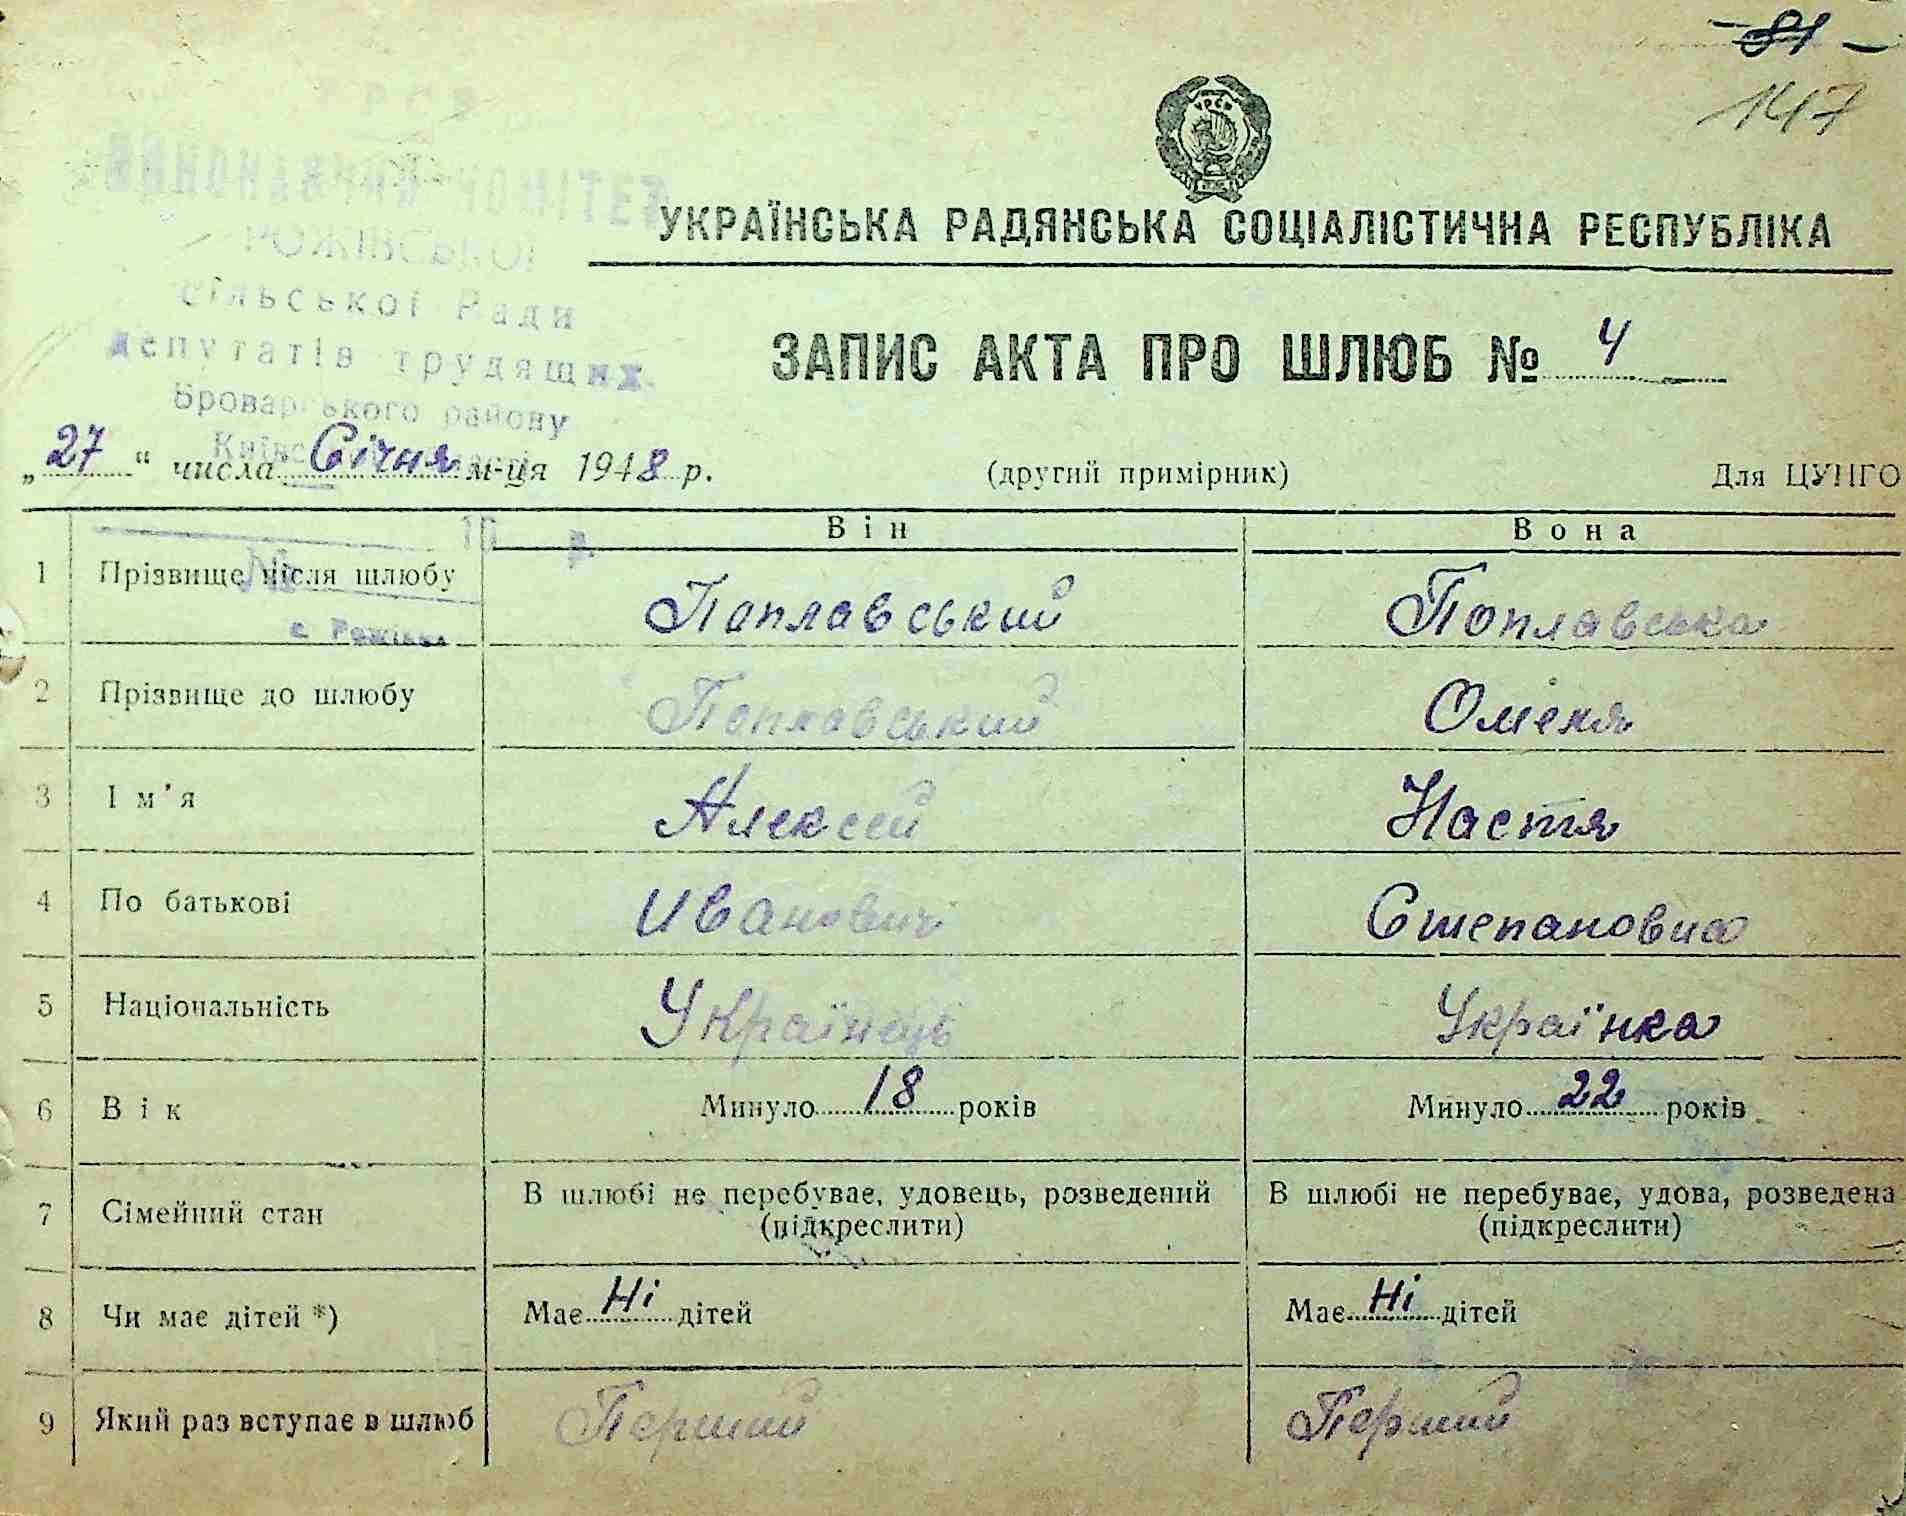 81
147
УРСР
ВИКОНАВЧИЙ КОМІТЕТ
РОЖІВСЬКОЇ
сільської Ради
депутатів трудящих
Броварського району
УКРАЇНСЬКА РАДЯНСЬКА СОЦІАЛІСТИЧНА РЕСПУБЛІКА
ЗАПИС АКТА ПРО ШЛЮБ № 4
„27“ числа Січня м-ця 1948 р. (другий примірник) Для ЦУНГО
Він Вона
1 Прізвище після шлюбу Поплавський Поплавська
с. Рожівка
2 Прізвище до шлюбу Поплавський Омеля
3 Ім'я Алексей Настя
4 По батькові Иванович Степановна
5 Національність Українець Українка
6 Вік Минуло 18 років Минуло 22 років
7 Сімейний стан В шлюбі не перебуває, удовець, розведений (підкреслити) В шлюбі не перебуває, удова, розведена (підкреслити)
8 Чи має дітей *) Має Ні дітей Має Ні дітей
9 Який раз вступає в шлюб Перший Перший